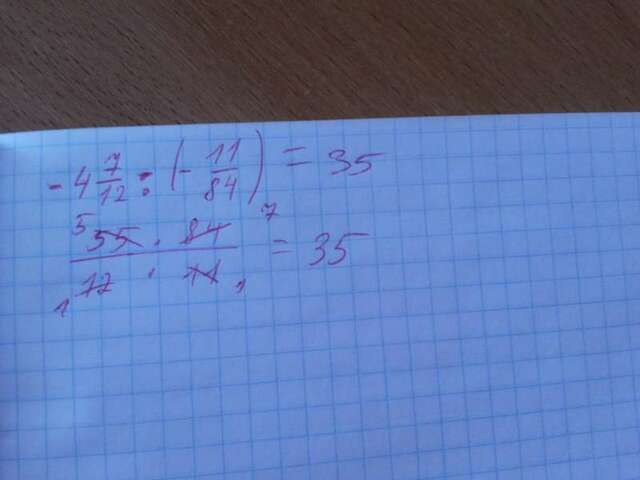 -4 7/12 : (- 11/84) = 35
5 55 · 84 7 / 1 12 · 11 1 = 35